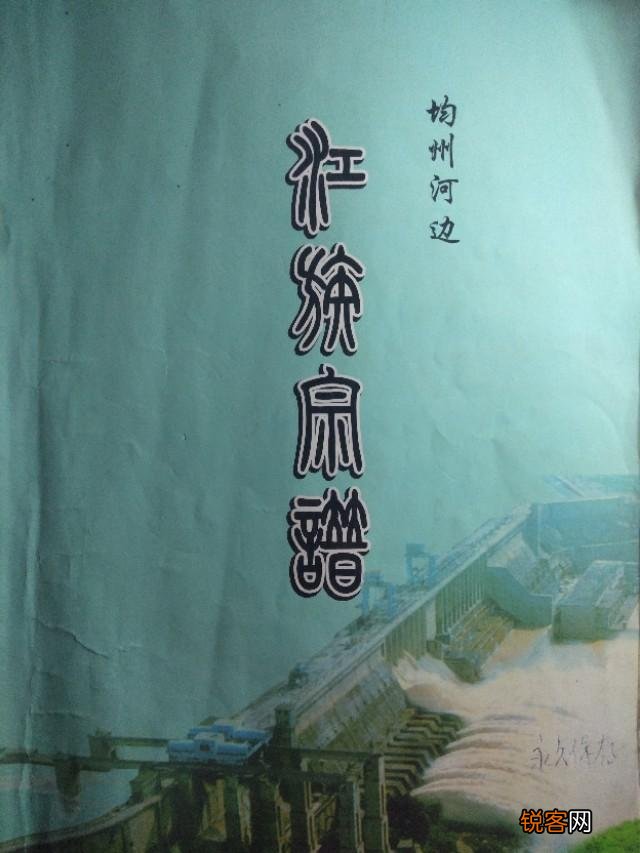 均州河边
江族宗譜
永久保存
锐客网